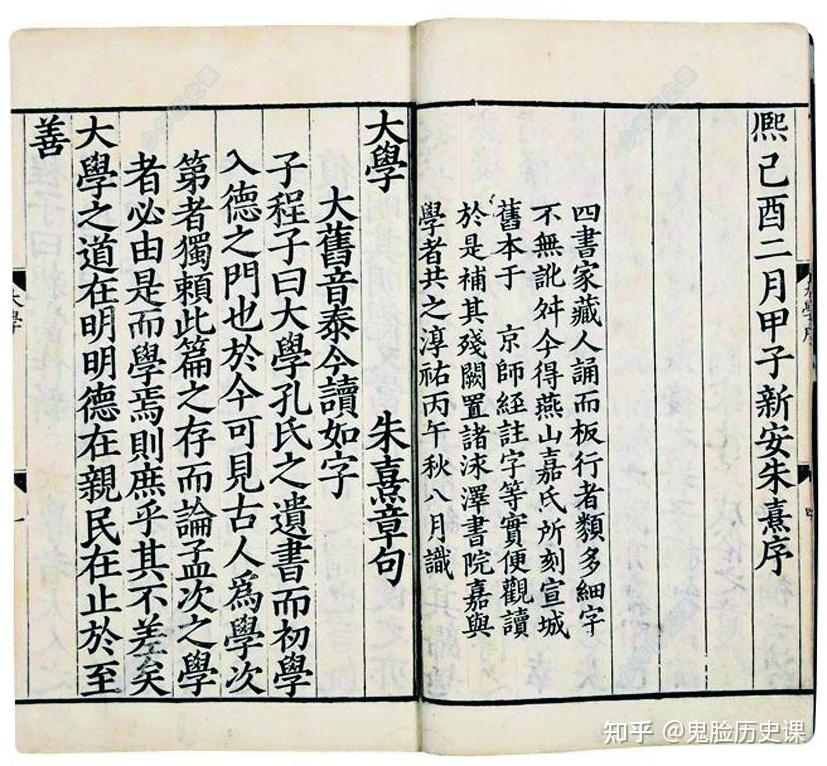 熈己酉二月甲子新安朱熹序
四書家藏人誦而板行者類多細字
不無訛舛今得燕山嘉氏所刻宣城
舊本于 京師經註字等實便觀讀
於是補其殘闕置諸泳澤書院嘉與
學者共之淳祐丙午秋八月識
大學 朱熹章句
大舊音泰今讀如字
子程子曰大學孔氏之遺書而初學
入德之門也於今可見古人爲學次
第者獨賴此篇之存而論孟次之學
者必由是而學焉則庶乎其不差矣
大學之道在明明德在親民在止於至
善
大學 一
知乎 @鬼脸历史课